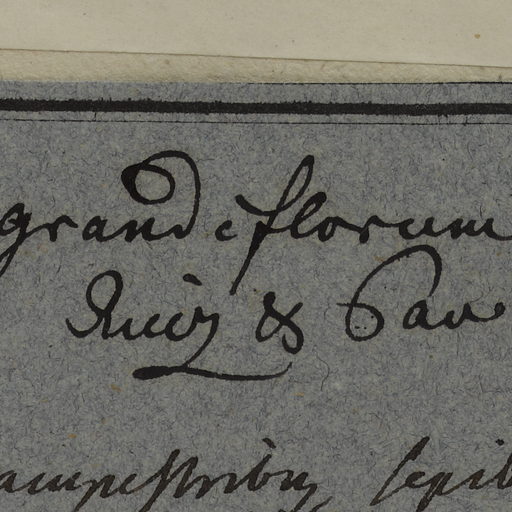 grandiflorum
Ruiz & Pav
campestribus, sepib